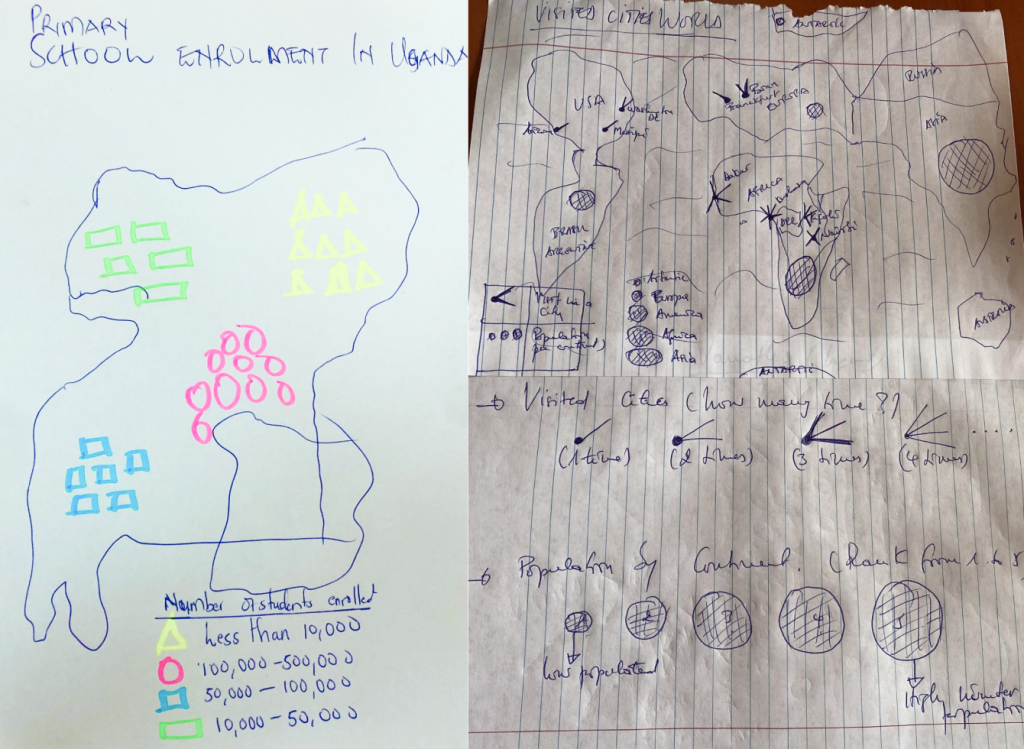 PRIMARY
SCHOOL ENROLMENT IN UGANDA
Number of students enrolled
Less than 10,000
100,000 - 500,000
50,000 - 100,000
10,000 - 50,000
VISITED CITIES WORLD
ANTARTIC
RUSSIA
USA
Washington DC
Bonn
Frankfurt
EUROPA
ASIA
Dakar
AFRICA
DRC
Nairobi
BRAZIL
ARGENTINA
Visit in a
City
Population
per continent)
Antartic
Europe
America
Africa
Asia
ANTARTIC
→ Visited cities (how many time?)
(1 time)
(2 times)
(3 times)
(4 times)
....
→ Population by Continent. (Rank from 1 to 5
1
2
3
4
5
low populated
Highly number
population